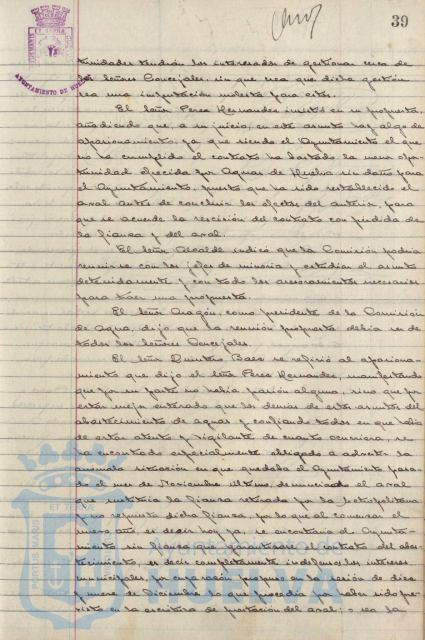 39
AYUNTAMIENTO DE HUELVA
tunidades tendrían los interesados de gestionar cerca de
los señores Concejales, sin que crea que dicha gestión
sea una imputación molesta para estos.
El señor Perez Hernandez insistió en su propuesta,
añadiendo que, a su juicio, en este asunto hay algo de
apasionamiento, ya que siendo el Ayuntamiento el que
no ha cumplido el contrato ha bastado la menor opor-
tunidad ofrecida por Aguas de Huelva sin daño para
el Ayuntamiento, puesto que ha sido restablecido el
aval antes de concluir los efectos del anterior, para
que se acuerde la rescisión del contrato con pérdida de
la fianza y del aval.
El señor Alcalde indicó que la Comisión podría
reunirse con los jefes de minoria y estudiar el asunto
detenidamente y con todos los asesoramientos necesarios
para traer una propuesta.
El señor Aragón, como presidente de la Comisión
de Agua, dijo que la reunión propuesta debia ser de
todos los señores Concejales.
El señor Quintero Baez se refirió al apasiona-
miento que dijo el señor Perez Hernandez, manifestando
que por su parte no había pasión alguna, sino que por
estar mejor enterado que los demás de estos asuntos del
abastecimiento de aguas y confiando todos en que habia
de estar atento y vigilante de cuanto ocurriera, se
ha encontrado especialmente obligado a advertir la
anómala situación en que quedaba el Ayuntamiento pasa-
do el mes de Noviembre último, denunciado el aval
que sustituía la fianza retirada por la
y no repuesto dicha fianza, por lo que al comenzar el
nuevo año, es decir hoy ya, se encontraria el Ayunta-
miento sin fianza que garantizase el contrato del abas-
tecimiento, es decir completamente indefensos los intereses
municipales, por cuya razón propuso en la sesión de diez
y nueve de Diciembre lo que procedía por haber sido pre-
visto en la escritura de prestación del aval; o sea la
Ayuntamiento de
HUELVA
PORTUS MARIS
ET TERRAE